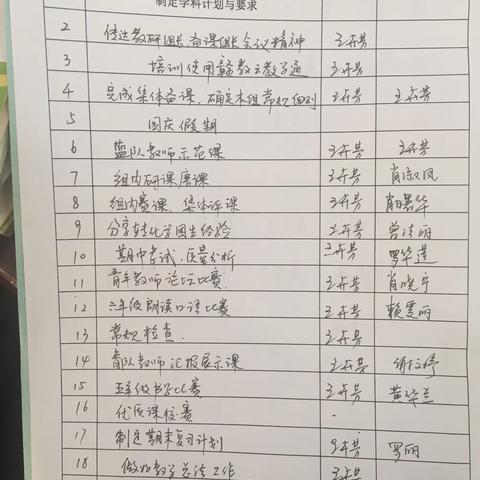 制定学科计划与要求
2 传达教研组长、备课组长会议精神 王卉芳
3 培训使用赣教云教学通 王卉芳
4 完成集体备课，确定本组常规细则 王卉芳 王卉芳
5 国庆假期
6 蓝队教师示范课 王卉芳 王卉芳
7 组内研课磨课 王卉芳 肖淑凤
8 组内赛课，集体评课 王卉芳
9 分享转化学困生经验 王卉芳 曾清丽
10 期中考试，质量分析 王卉芳 罗华莲
11 青年教师论坛比赛 王卉芳 肖晓宇
12 六年级朗读口语比赛 王卉芳 赖雯丽
13 常规检查 王卉芳
14 青队教师汇报展示课 王卉芳 谢文婷
15 五年级书字比赛 王卉芳 黄华兰
16 优质课校赛
17 制定期末复习计划 王卉芳 罗丽
18 做好教学总结工作 王卉芳